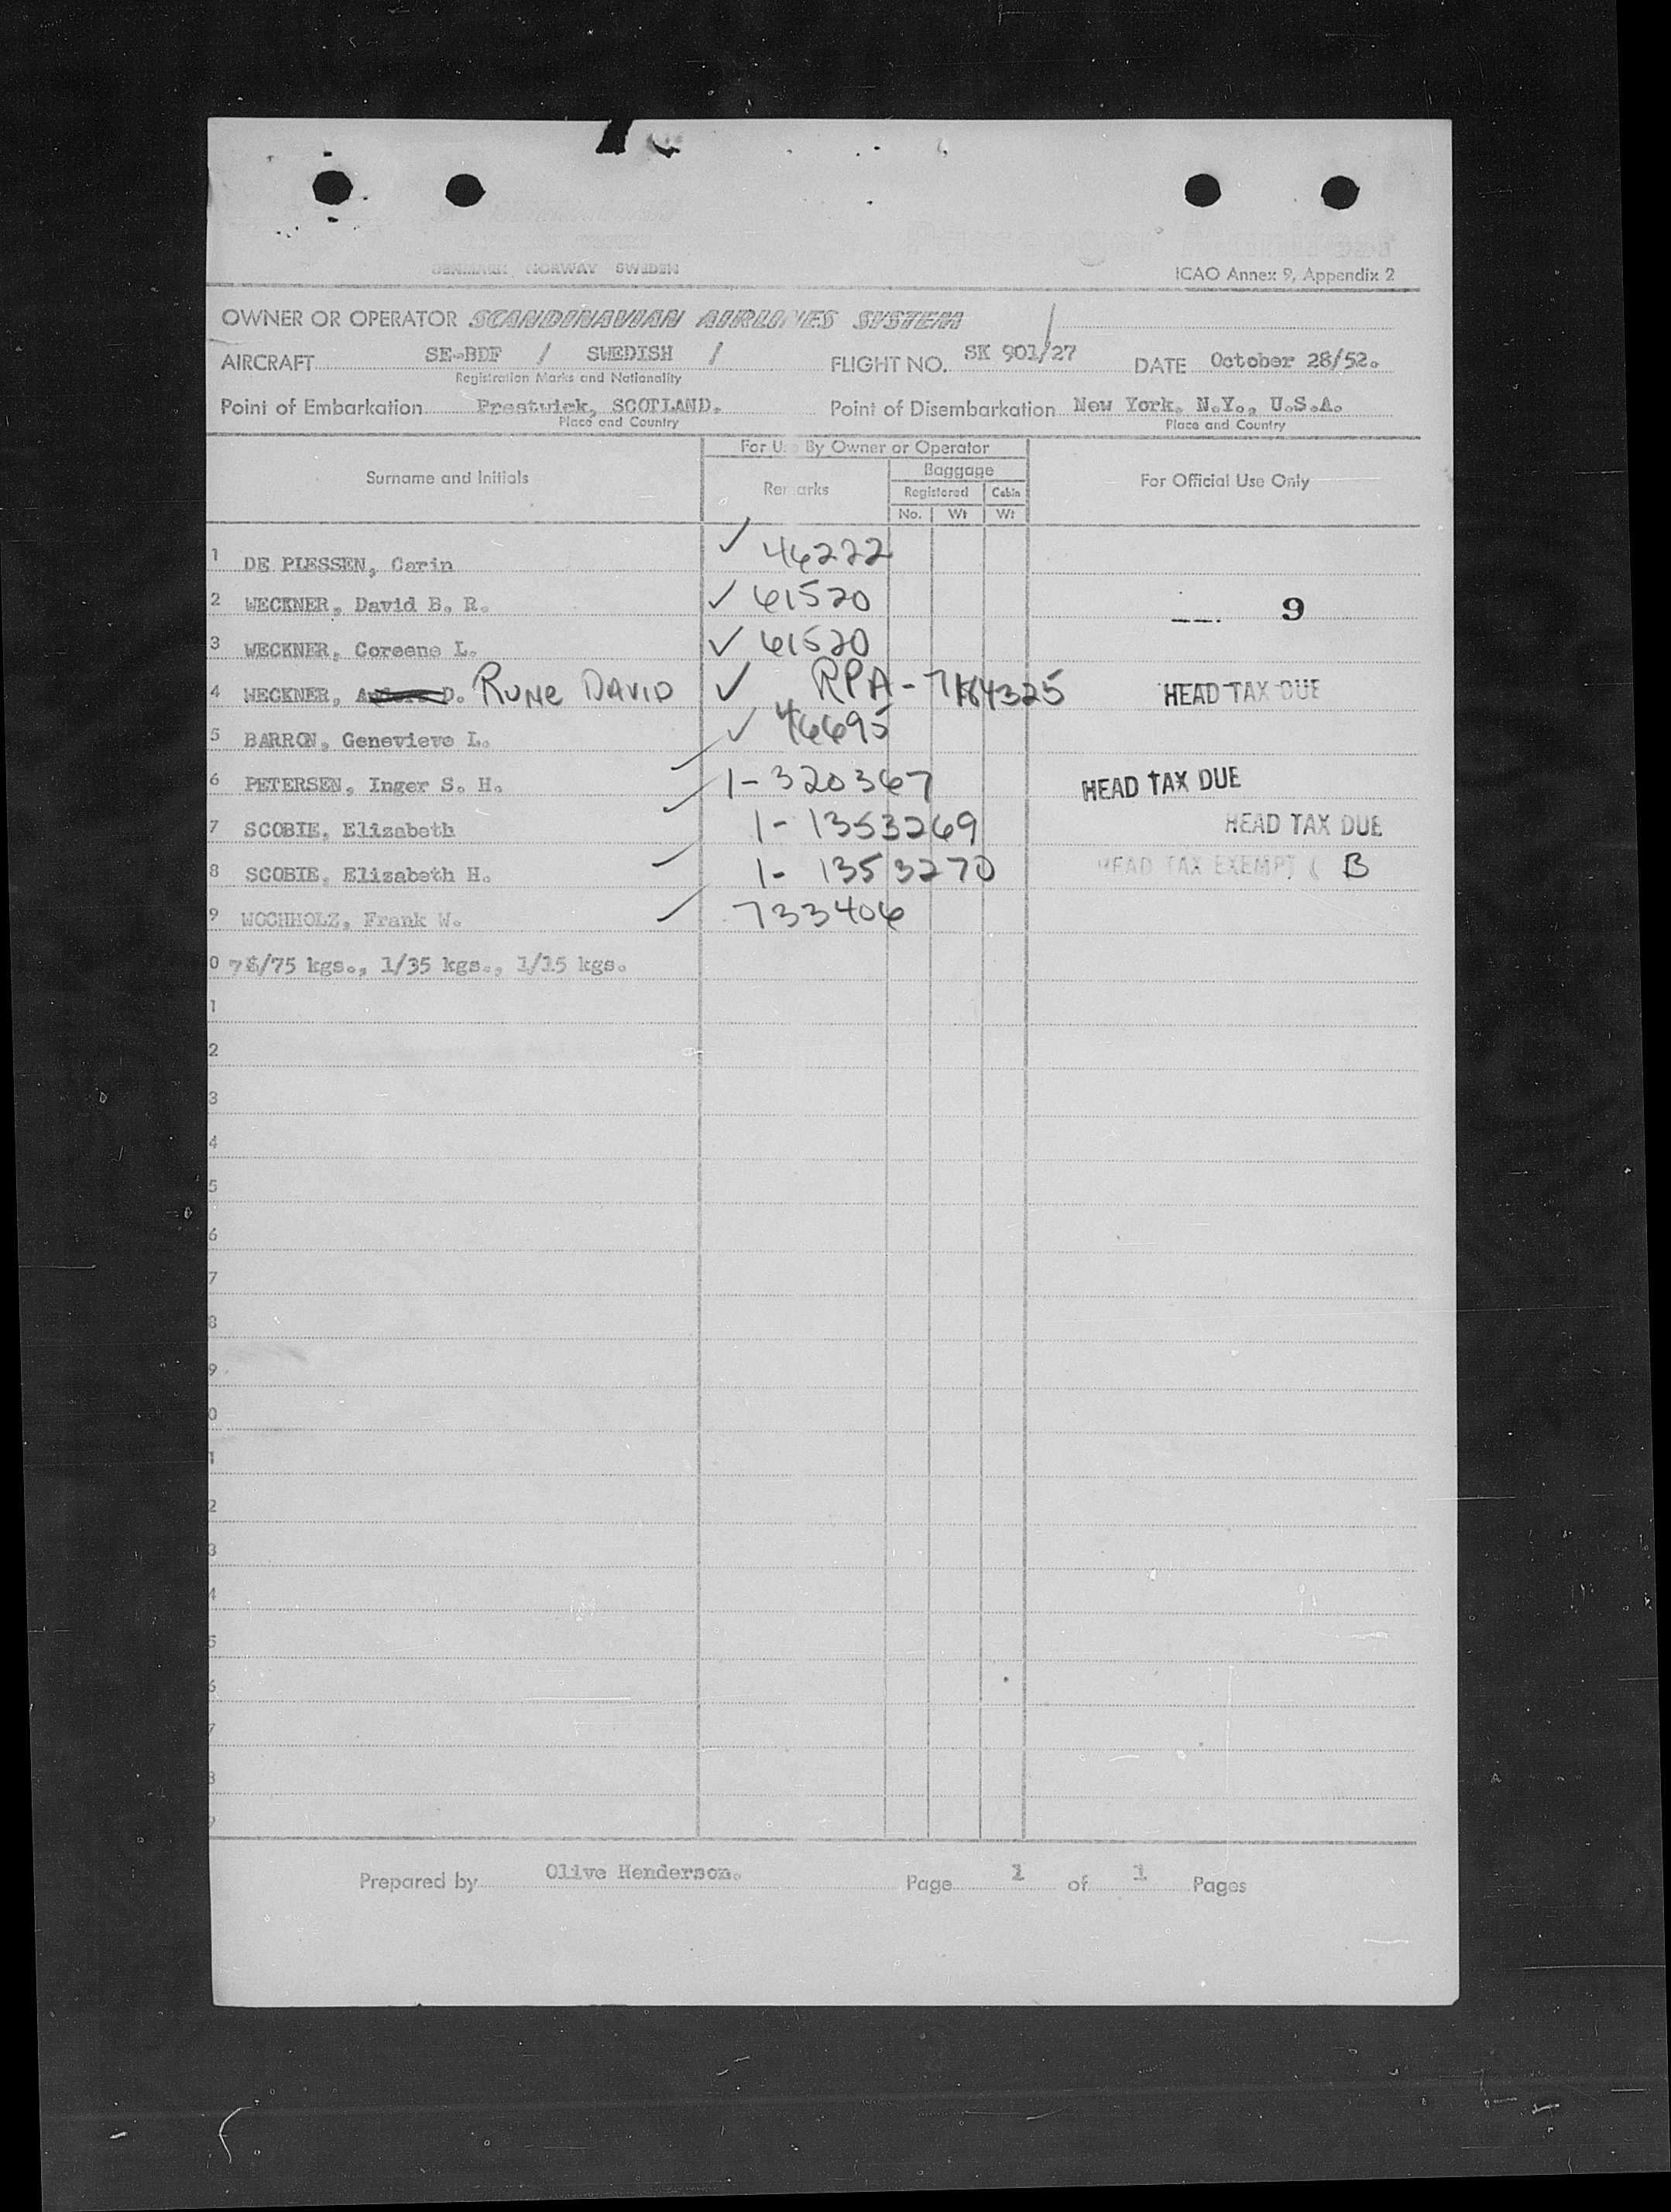 DENMARK NORWAY SWEDEN
Passenger Manifest
ICAO Annex 9, Appendix 2
OWNER OR OPERATOR SCANDINAVIAN AIRLINES SYSTEM
AIRCRAFT SE-BDF / SWEDISH / FLIGHT NO. SK 901/27 DATE October 28/52.
Registration Marks and Nationality
Point of Embarkation Prestwick, SCOTLAND. Point of Disembarkation New York, N.Y., U.S.A.
Place and Country Place and Country
For Use By Owner or Operator
Surname and Initials Remarks Baggage For Official Use Only
Registered Cabin
No. Wt Wt
1 DE PLESSEN, Carin ✓ 46222
2 WECKNER, David B. R. ✓ 61520 9
3 WECKNER, Coreene L. ✓ 61520
4 WECKNER, D. RUNE DAVID ✓ RPA- HEAD TAX DUE
5 BARRON, Genevieve L. ✓ 46695
6 PETERSEN, Inger S. H. 1-320367 HEAD TAX DUE
7 SCOBIE, Elizabeth 1-1353269 HEAD TAX DUE
8 SCOBIE, Elizabeth H. 1-1353270 HEAD TAX EXEMPT ( B
9 WOCHHOLZ, Frank W. 733406
0 /75 kgs., 1/35 kgs., 1/15 kgs.
1
2
3
4
5
6
7
8
9
0
1
2
3
4
5
6
7
8
9
Prepared by Olive Henderson. Page 1 of 1 Pages